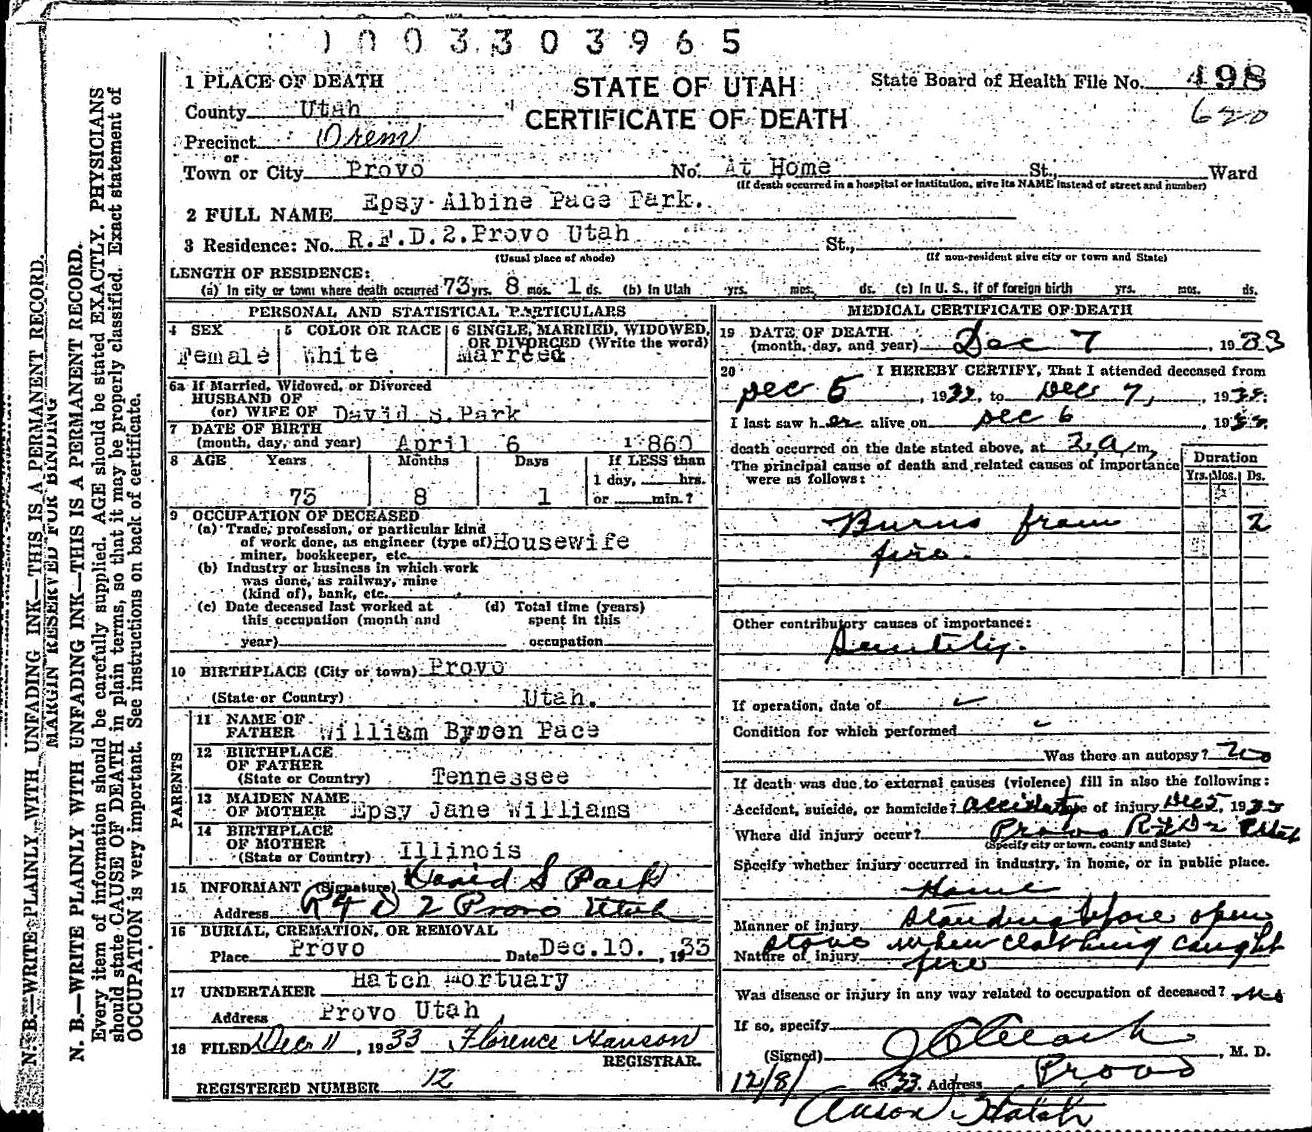 1003303965
1 PLACE OF DEATH
STATE OF UTAH
State Board of Health File No. 498
County Utah
CERTIFICATE OF DEATH
620
Precinct Orem
or
Town or City Provo No. At Home St., Ward
(If death occurred in a hospital or institution, give its NAME instead of street and number)
2 FULL NAME Epsy Albine Pace Park.
3 Residence: No. R.F.D.2.Provo Utah St.,
(Usual place of abode) (If non-resident give city or town and State)
LENGTH OF RESIDENCE:
(a) In city or town where death occurred 73 yrs. 8 mos. 1 ds. (b) In Utah yrs. mos. ds. (c) In U. S., if of foreign birth yrs. mos. ds.
PERSONAL AND STATISTICAL PARTICULARS
4 SEX 5 COLOR OR RACE 6 SINGLE, MARRIED, WIDOWED,
OR DIVORCED (Write the word)
Female White Marreed
6a If Married, Widowed, or Divorced
HUSBAND OF
(or) WIFE OF David S.Park
7 DATE OF BIRTH
(month, day, and year) April 6 1860
8 AGE Years Months Days If LESS than
1 day, hrs.
73 8 1 or min.?
9 OCCUPATION OF DECEASED
(a) Trade, profession, or particular kind
of work done, as engineer (type of) Housewife
miner, bookkeeper, etc.
(b) Industry or business in which work
was done, as railway, mine
(kind of), bank, etc.
(c) Date deceased last worked at (d) Total time (years)
this occupation (month and spent in this
year) occupation
10 BIRTHPLACE (City or town) Provo
(State or Country) Utah.
PARENTS
11 NAME OF
FATHER William Byron Pace
12 BIRTHPLACE
OF FATHER
(State or Country) Tennessee
13 MAIDEN NAME
OF MOTHER Epsy Jane Williams
14 BIRTHPLACE
OF MOTHER
(State or Country) Illinois
15 INFORMANT (Signature) David S Park
Address R F D 2 Provo Utah
16 BURIAL, CREMATION, OR REMOVAL
Place Provo Date Dec.10. , 1933
Hatch Mortuary
17 UNDERTAKER
Address Provo Utah
18 FILED Dec 11 , 1933 Florence Hanson
REGISTRAR.
REGISTERED NUMBER 12
MEDICAL CERTIFICATE OF DEATH
19 DATE OF DEATH
(month, day, and year) Dec 7 , 1933
20 I HEREBY CERTIFY, That I attended deceased from
Dec 5 , 1933, to Dec 7, , 1933:
I last saw her alive on Dec 6 , 1933.
death occurred on the date stated above, at 2, a, m,
The principal cause of death and related causes of importance
were as follows:
Duration
Yrs. Mos. Ds.
Burns from 2
fire.
Other contributory causes of importance:
If operation, date of
Condition for which performed
Was there an autopsy? no
If death was due to external causes (violence) fill in also the following:
Accident, suicide, or homicide? accident Date of injury Dec 5, 1933
Where did injury occur? Provo RFD 2 Utah
(Specify city or town, county and State)
Specify whether injury occurred in industry, in home, or in public place.
Home
Manner of injury standing before open
stove when clothing caught
Nature of injury fire
Was disease or injury in any way related to occupation of deceased? No
If so, specify
(Signed) , M. D.
12/8/ 1933. Address Provo
Anson Hatch
N. B.—WRITE PLAINLY WITH UNFADING INK—THIS IS A PERMANENT RECORD.
MARGIN RESERVED FOR BINDING
N. B.—WRITE PLAINLY WITH UNFADING INK—THIS IS A PERMANENT RECORD.
Every item of information should be carefully supplied. AGE should be stated EXACTLY. PHYSICIANS
should state CAUSE OF DEATH in plain terms, so that it may be properly classified. Exact statement of
OCCUPATION is very important. See instructions on back of certificate.